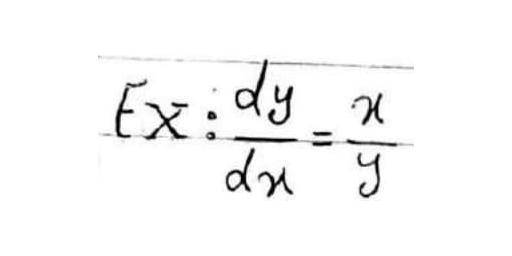 Ex: dy/dx = x/y